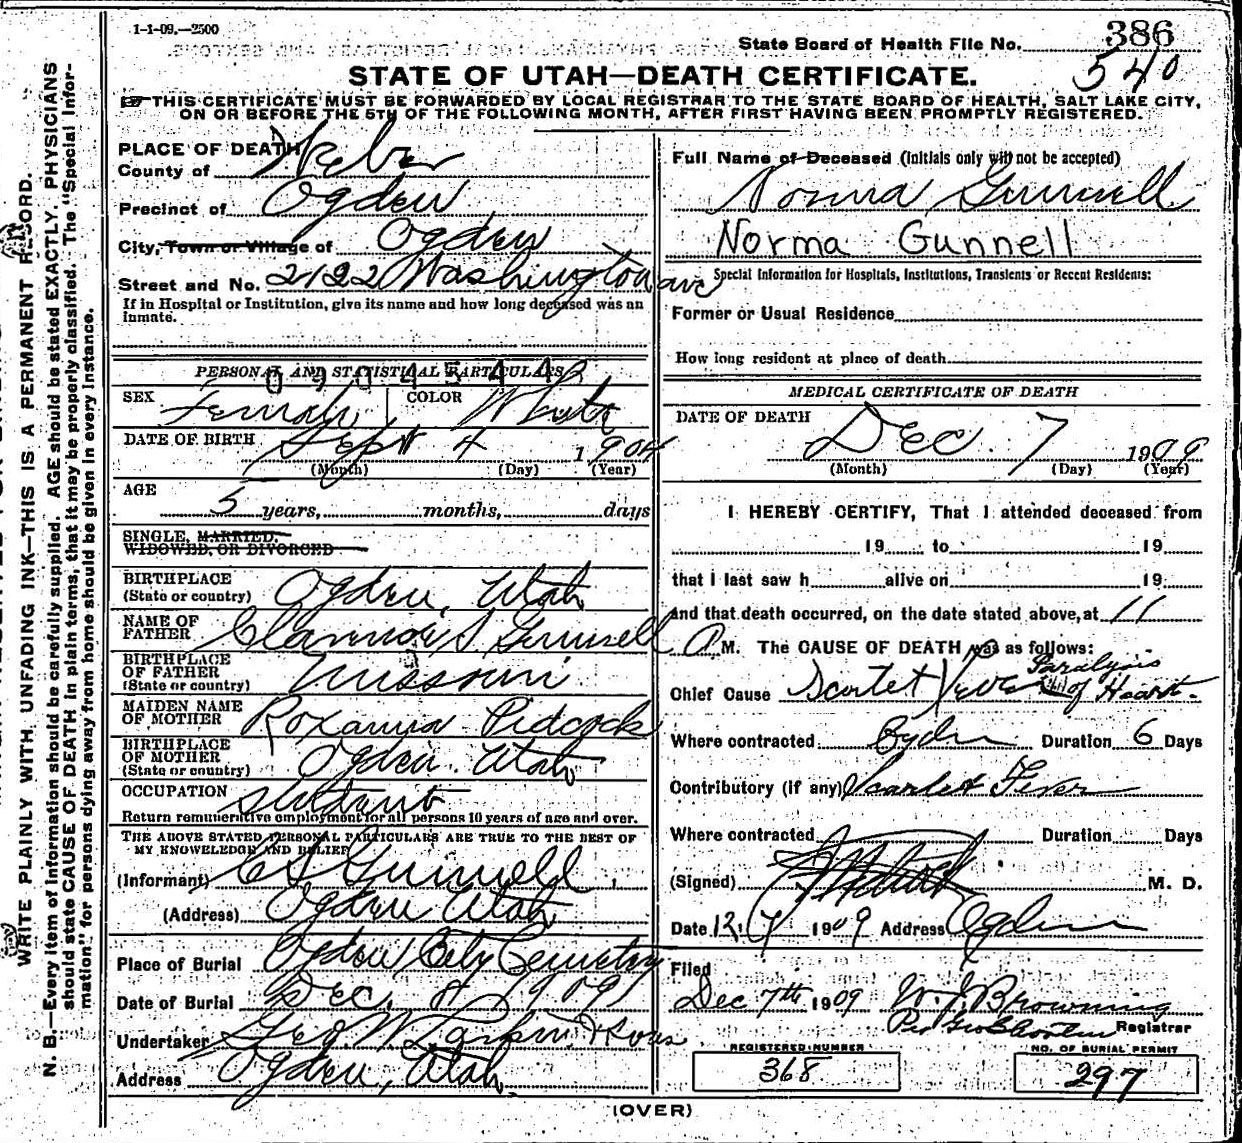 1-1-09.—2500
State Board of Health File No. 386
540
STATE OF UTAH—DEATH CERTIFICATE.
THIS CERTIFICATE MUST BE FORWARDED BY LOCAL REGISTRAR TO THE STATE BOARD OF HEALTH, SALT LAKE CITY,
ON OR BEFORE THE 5TH OF THE FOLLOWING MONTH, AFTER FIRST HAVING BEEN PROMPTLY REGISTERED.
PLACE OF DEATH
County of Weber
Precinct of Ogden
City, Town or Village of Ogden
Street and No. 2122 Washington ave
If in Hospital or Institution, give its name and how long deceased was an
inmate.
PERSONAL AND STATISTICAL PARTICULARS
0904544
SEX Female COLOR White
DATE OF BIRTH Sept 4 1904
(Month) (Day) (Year)
AGE
5 years, months, days
SINGLE, MARRIED,
WIDOWED, OR DIVORCED
BIRTHPLACE
(State or country) Ogden, Utah
NAME OF
FATHER S Gunnell
BIRTHPLACE
OF FATHER
(State or country) Missouri
MAIDEN NAME
OF MOTHER Roxanna Pidcock
BIRTHPLACE
OF MOTHER
(State or country) Ogden Utah
OCCUPATION Student
Return remunerative employment for all persons 10 years of age and over.
THE ABOVE STATED PERSONAL PARTICULARS ARE TRUE TO THE BEST OF
MY KNOWLEDGE AND BELIEF
(Informant) C S Gunnell
(Address) Ogden Utah
Place of Burial Ogden City Cemetery
Date of Burial Dec. 8 1909
Undertaker Geo. W. Larkin & Sons
Address Ogden, Utah
Full Name of Deceased (Initials only will not be accepted)
Norma Gunnell
Norma Gunnell
Special Information for Hospitals, Institutions, Transients or Recent Residents:
Former or Usual Residence
How long resident at place of death
MEDICAL CERTIFICATE OF DEATH
DATE OF DEATH
Dec. 7 1909
(Month) (Day) (Year)
I HEREBY CERTIFY, That I attended deceased from
19 to 19
that I last saw h alive on 19
and that death occurred, on the date stated above, at 11
M. The CAUSE OF DEATH was as follows:
Chief Cause Scarlet Fever Paralysis
of Heart
Where contracted Ogden Duration 6 Days
Contributory (if any) Scarlet Fever
Where contracted Duration Days
(Signed) M. D.
Date 12/7 1909 Address Ogden
Filed
Dec 7th 1909 W. J. Browning
Per Registrar
REGISTERED NUMBER
368
NO. OF BURIAL PERMIT
297
(OVER)
WRITE PLAINLY WITH UNFADING INK—THIS IS A PERMANENT RECORD.
N. B.—Every item of information should be carefully supplied. AGE should be stated EXACTLY. PHYSICIANS
should state CAUSE OF DEATH in plain terms, that it may be properly classified. The "Special Infor-
mation" for persons dying away from home should be given in every instance.